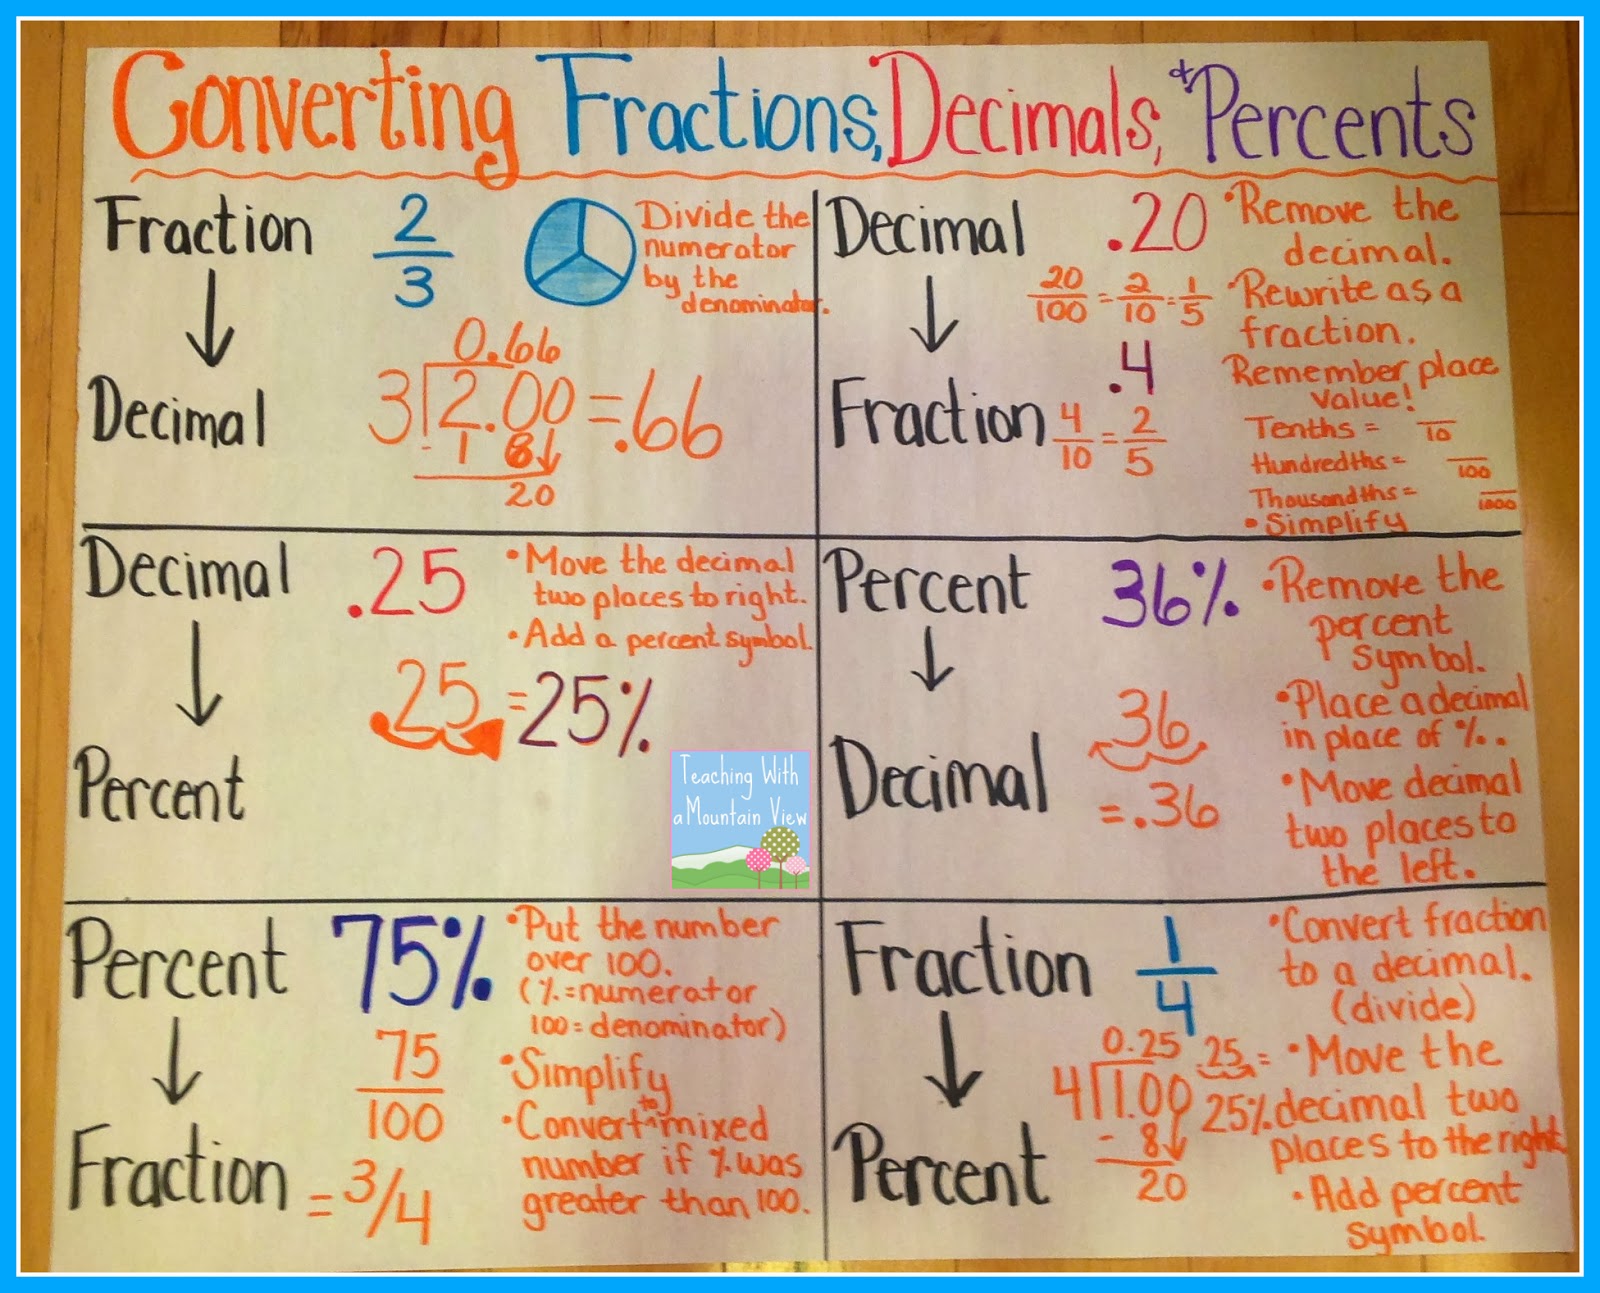 Converting Fractions, Decimals, & Percents
Fraction
2
3
Divide the
numerator
by the
denominator.
0.66
3 2.00 = .66
- 1 8
20
Decimal
Decimal
.20
• Remove the
decimal.
20/100 = 2/10 = 1/5
• Rewrite as a
fraction.
.4
Remember place
value!
Fraction
4/10 = 2/5
Tenths = /10
Hundredths = /100
Thousandths = /1000
• Simplify
Decimal
.25
• Move the decimal
two places to right.
• Add a percent symbol.
.25 = 25%
Percent
Teaching With
a Mountain View
Percent
36%
• Remove the
percent
symbol.
• Place a decimal
in place of %. .
36.
= .36
• Move decimal
two places to
the left.
Decimal
Percent
75%
• Put the number
over 100.
(% = numerator
100 = denominator)
75
100
• Simplify
• Convert to mixed
number if % was
greater than 100.
Fraction
= 3/4
Fraction
1
4
• Convert fraction
to a decimal.
(divide)
0.25
4 1.00
- 8
20
.25 =
25%
• Move the
decimal two
places to the right
• Add percent
symbol.
Percent